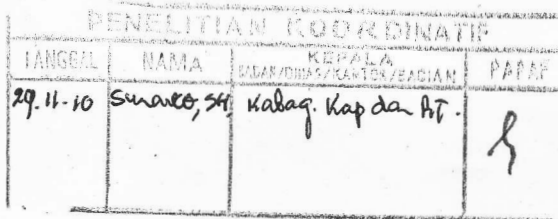 PENELITIAN KOORDINATIF
TANGGAL NAMA KEPALA BADAN/DINAS/KANTOR/BAGIAN PARAF
29.11-10 Sunarto, SH. Kabag. Kap dan RT.